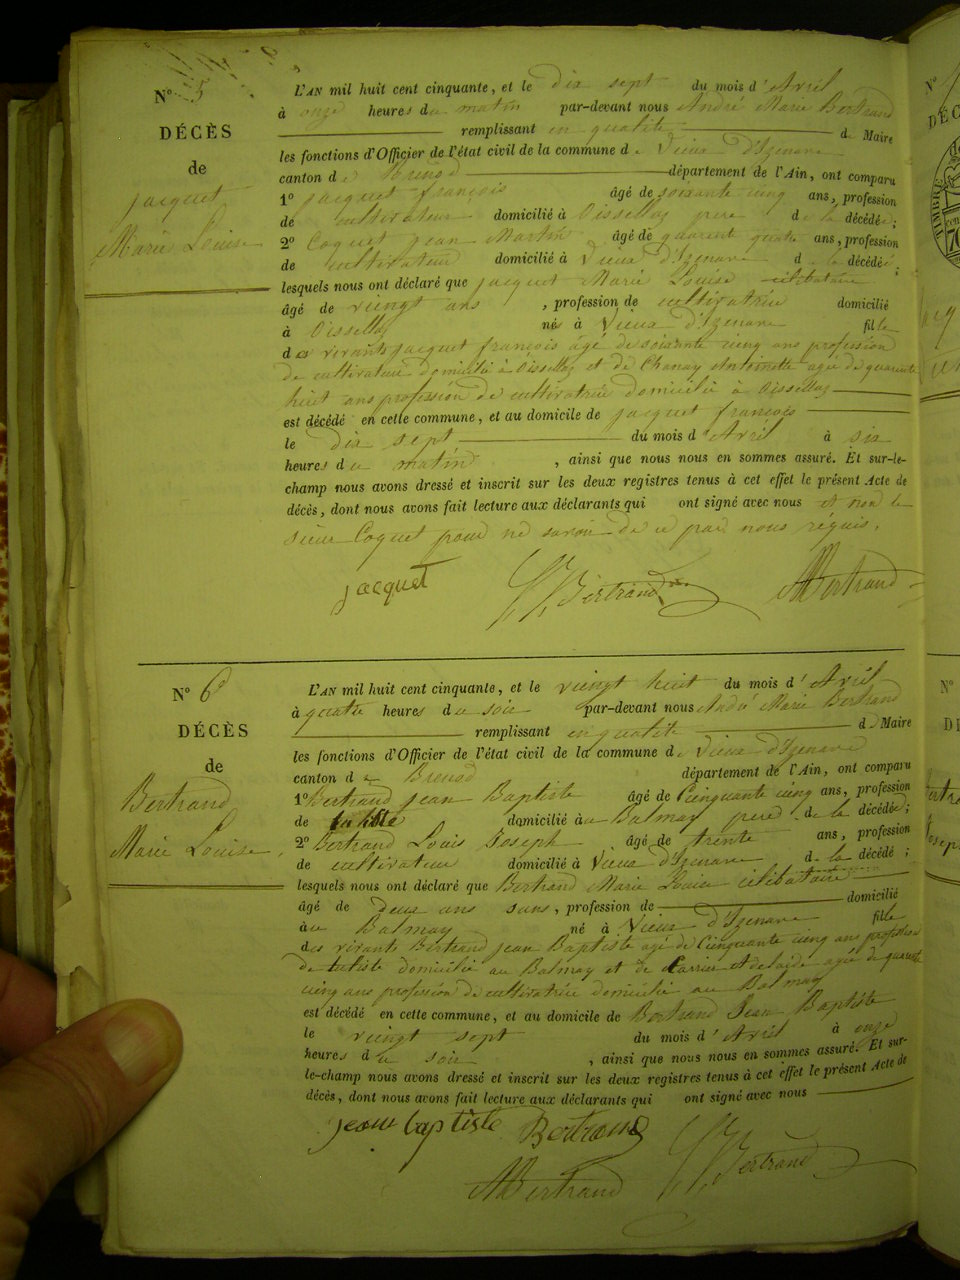 N° 5
DÉCÈS
de
jacquet
Marie Louise
L'AN mil huit cent cinquante, et le dix sept du mois d'Avril
à onze heures du matin par-devant nous André Marie Bertrand
remplissant en qualité de Maire
les fonctions d'Officier de l'état civil de la commune de Vieux d'Izenave
canton de Brenod département de l'Ain, ont comparu
1° jacquet françois âgé de soixante cinq ans, profession
de cultivateur domicilié à Oisselaz pere de la décédée;
2° Coquet jean Martin âgé de quarent quatre ans, profession
de cultivateur domicilié à Vieux d'Izenave d la décédée;
lesquels nous ont déclaré que jacquet Marie Louise célibataire
âgé de vieingt ans, profession de cultivatrice domicilié
à Oisselaz née à Vieux d'Izenave fille
des vivants jacquet françois âgé de soixante cinq ans profession
de cultivateur domicilié à Oisselaz et de Chanay Antoinette agée de quarente
huit ans profession de cultivatrice domicilié à Oisselaz
est décédé en cette commune, et au domicile de jacquet françois
le dix sept du mois d'Avril à six
heures du matin, ainsi que nous nous en sommes assuré. Et sur-le-
champ nous avons dressé et inscrit sur les deux registres tenus à cet effet le présent Acte de
décès, dont nous avons fait lecture aux déclarants qui ont signé avec nous et non le
sieur Coquet pour ne savoir de ce par nous réquis.
jacquet Bertrand AMBertrand
N° 6
DÉCÈS
de
Bertrand
Marie Louise
L'AN mil huit cent cinquante, et le vieingt huit du mois d'Avril
à quatre heures du soir par-devant nous André Marie Bertrand
remplissant en qualité d Maire
les fonctions d'Officier de l'état civil de la commune de Vieux d'Izenave
canton de Brenod département de l'Ain, ont comparu
1° Bertrand jean Baptiste âgé de Cinquante cinq ans, profession
de domicilié au Balmay pere de la décédée;
2° Bertrand Louis Joseph âgé de trente ans, profession
de cultivateur domicilié à Vieux d'Izenave d la décédé;
lesquels nous ont déclaré que Bertrand Marie Louise célibataire
âgé de deux ans sans, profession de domicilié
au Balmay né à Vieux d'Izenave fille
des vivants Bertrand jean Baptiste agé de Cinquante cinq ans profession
de domicilié au Balmay et de Carrier Adelaide agée de quarante
cinq ans profession de cultivatrice domicilié au Balmay
est décédé en cette commune, et au domicile de Bertrand Jean Baptiste
le vieingt sept du mois d'Avril à onze
heures du soir, ainsi que nous nous en sommes assuré. Et sur-
le-champ nous avons dressé et inscrit sur les deux registres tenus à cet effet le présent Acte de
décès, dont nous avons fait lecture aux déclarants qui ont signé avec nous
jean baptiste Bertrand
AMBertrand Bertrand